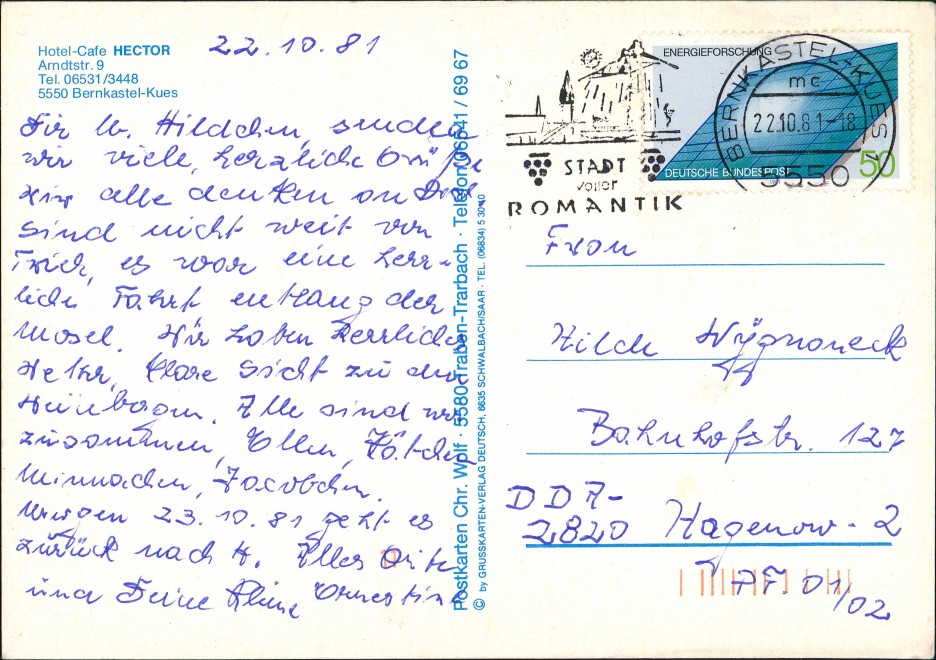 Hotel-Cafe HECTOR
Arndtstr. 9
Tel. 06531/3448
5550 Bernkastel-Kues
22.10.81
Dir lb. Hildchen, senden
wir viele herzliche Grüße
wir alle denken an Dich
sind nicht weit von
Trier, es war eine herr-
liche Fahrt entlang der
Mosel. Wir haben herrliches
Wetter, klare Sicht zu den
Weinbergen. Alle sind wir
zusammen, Ellen, Kätchen
Minnachen, Jacobchen.
Morgen 23.10.81 geht es
zurück nach H. Alles Gute
und Deine kleine Ernestine
Postkarten Chr. Wolf · 5580 Traben-Trarbach · Telefon (06541/69 67
© by GRUSSKARTEN-VERLAG DEUTSCH, 6635 SCHWALBACH/SAAR · TEL. (06834) 5 30 40
STADT
voller
ROMANTIK
ENERGIEFORSCHUNG
DEUTSCHE BUNDESPOST
50
BERNKASTEL-KUES 1
mc
22.10.81-18
5550
Frau
Hilde
Bahnhofstr. 127
DDR-
2820 Hagenow-2
PF. 01/02